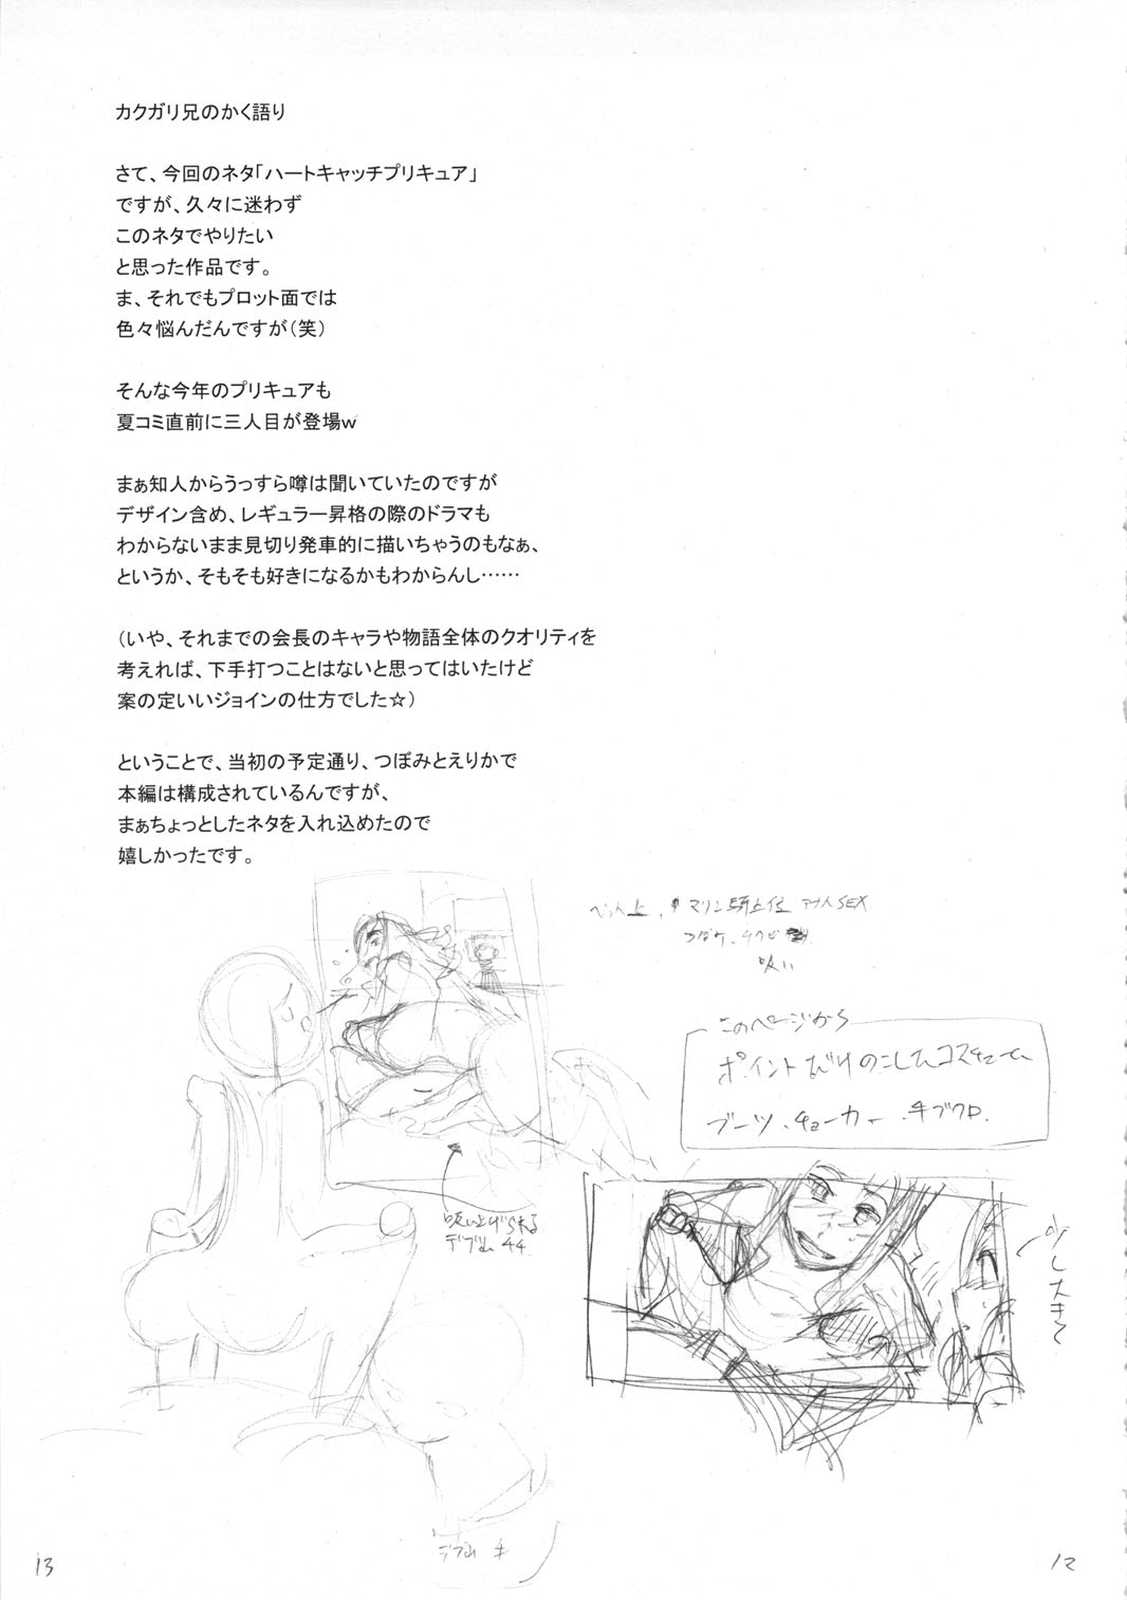 カクガリ兄のかく語り
さて、今回のネタ「ハートキャッチプリキュア」
ですが、久々に迷わず
このネタでやりたい
と思った作品です。
ま、それでもプロット面では
色々悩んだんですが(笑)
そんな今年のプリキュアも
夏コミ直前に三人目が登場w
まぁ知人からうっすら噂は聞いていたのですが
デザイン含め、レギュラー昇格の際のドラマも
わからないまま見切り発車的に描いちゃうのもなぁ、
というか、そもそも好きになるかもわからんし……
(いや、それまでの会長のキャラや物語全体のクオリティを
考えれば、下手打つことはないと思ってはいたけど
案の定いいジョインの仕方でした☆)
ということで、当初の予定通り、つぼみとえりかで
本編は構成されているんですが、
まぁちょっとしたネタを入れ込めたので
嬉しかったです。
マリン騎上位 SEX
吸い
このページから
ポイントだけのこしたコスチューム
ブーツ、チョーカー、手ブクロ
少し大きく
13
12